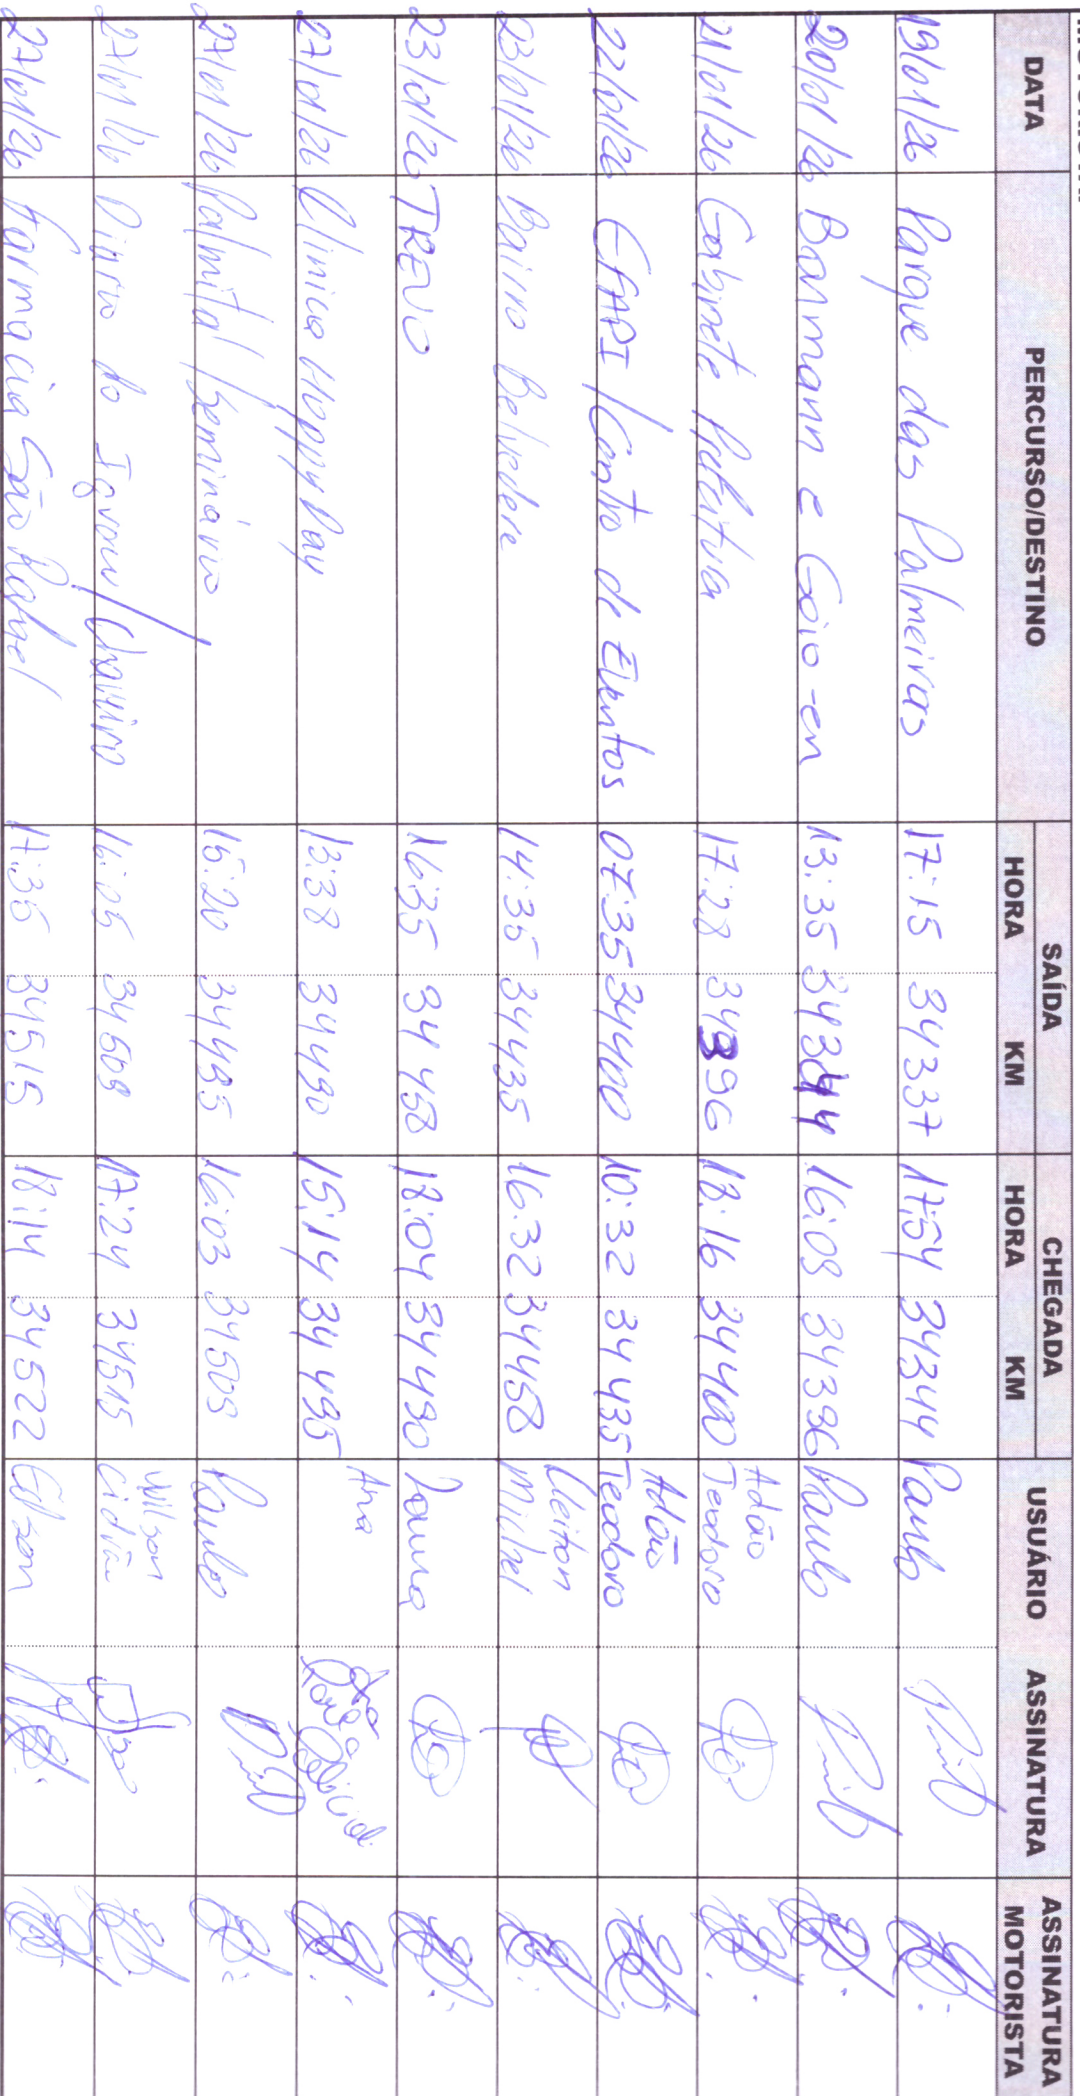 DATA PERCURSO/DESTINO SAÍDA CHEGADA USUÁRIO ASSINATURA ASSINATURA MOTORISTA
HORA KM HORA KM
19/01/26 Parque das Palmeiras 17:15 34337 17:54 34344 Paulo
20/01/26 Bormann e Goio-en 13:35 34344 16:09 34396 Paulo
21/01/26 Gabinete Prefeitura 17:28 34396 18:16 34400 Adão Teodoro
22/01/26 EFAPI / Centro de Eventos 07:35 34400 10:32 34435 Adão Teodoro
23/01/26 Bairro Belvedere 14:35 34435 16:32 34458 Cleiton
23/01/26 TREVO 16:35 34458 18:04 34490
27/01/26 Clinica Happy Day 13:38 34490 15:14 34495 Ana
27/01/26 Palmital / Seminário 15:20 34495 16:03 34509 Paulo
27/01/26 do 16:05 34509 17:24 34515 Wilson
27/01/26 Farmacia São Rafael 17:35 34515 18:14 34522